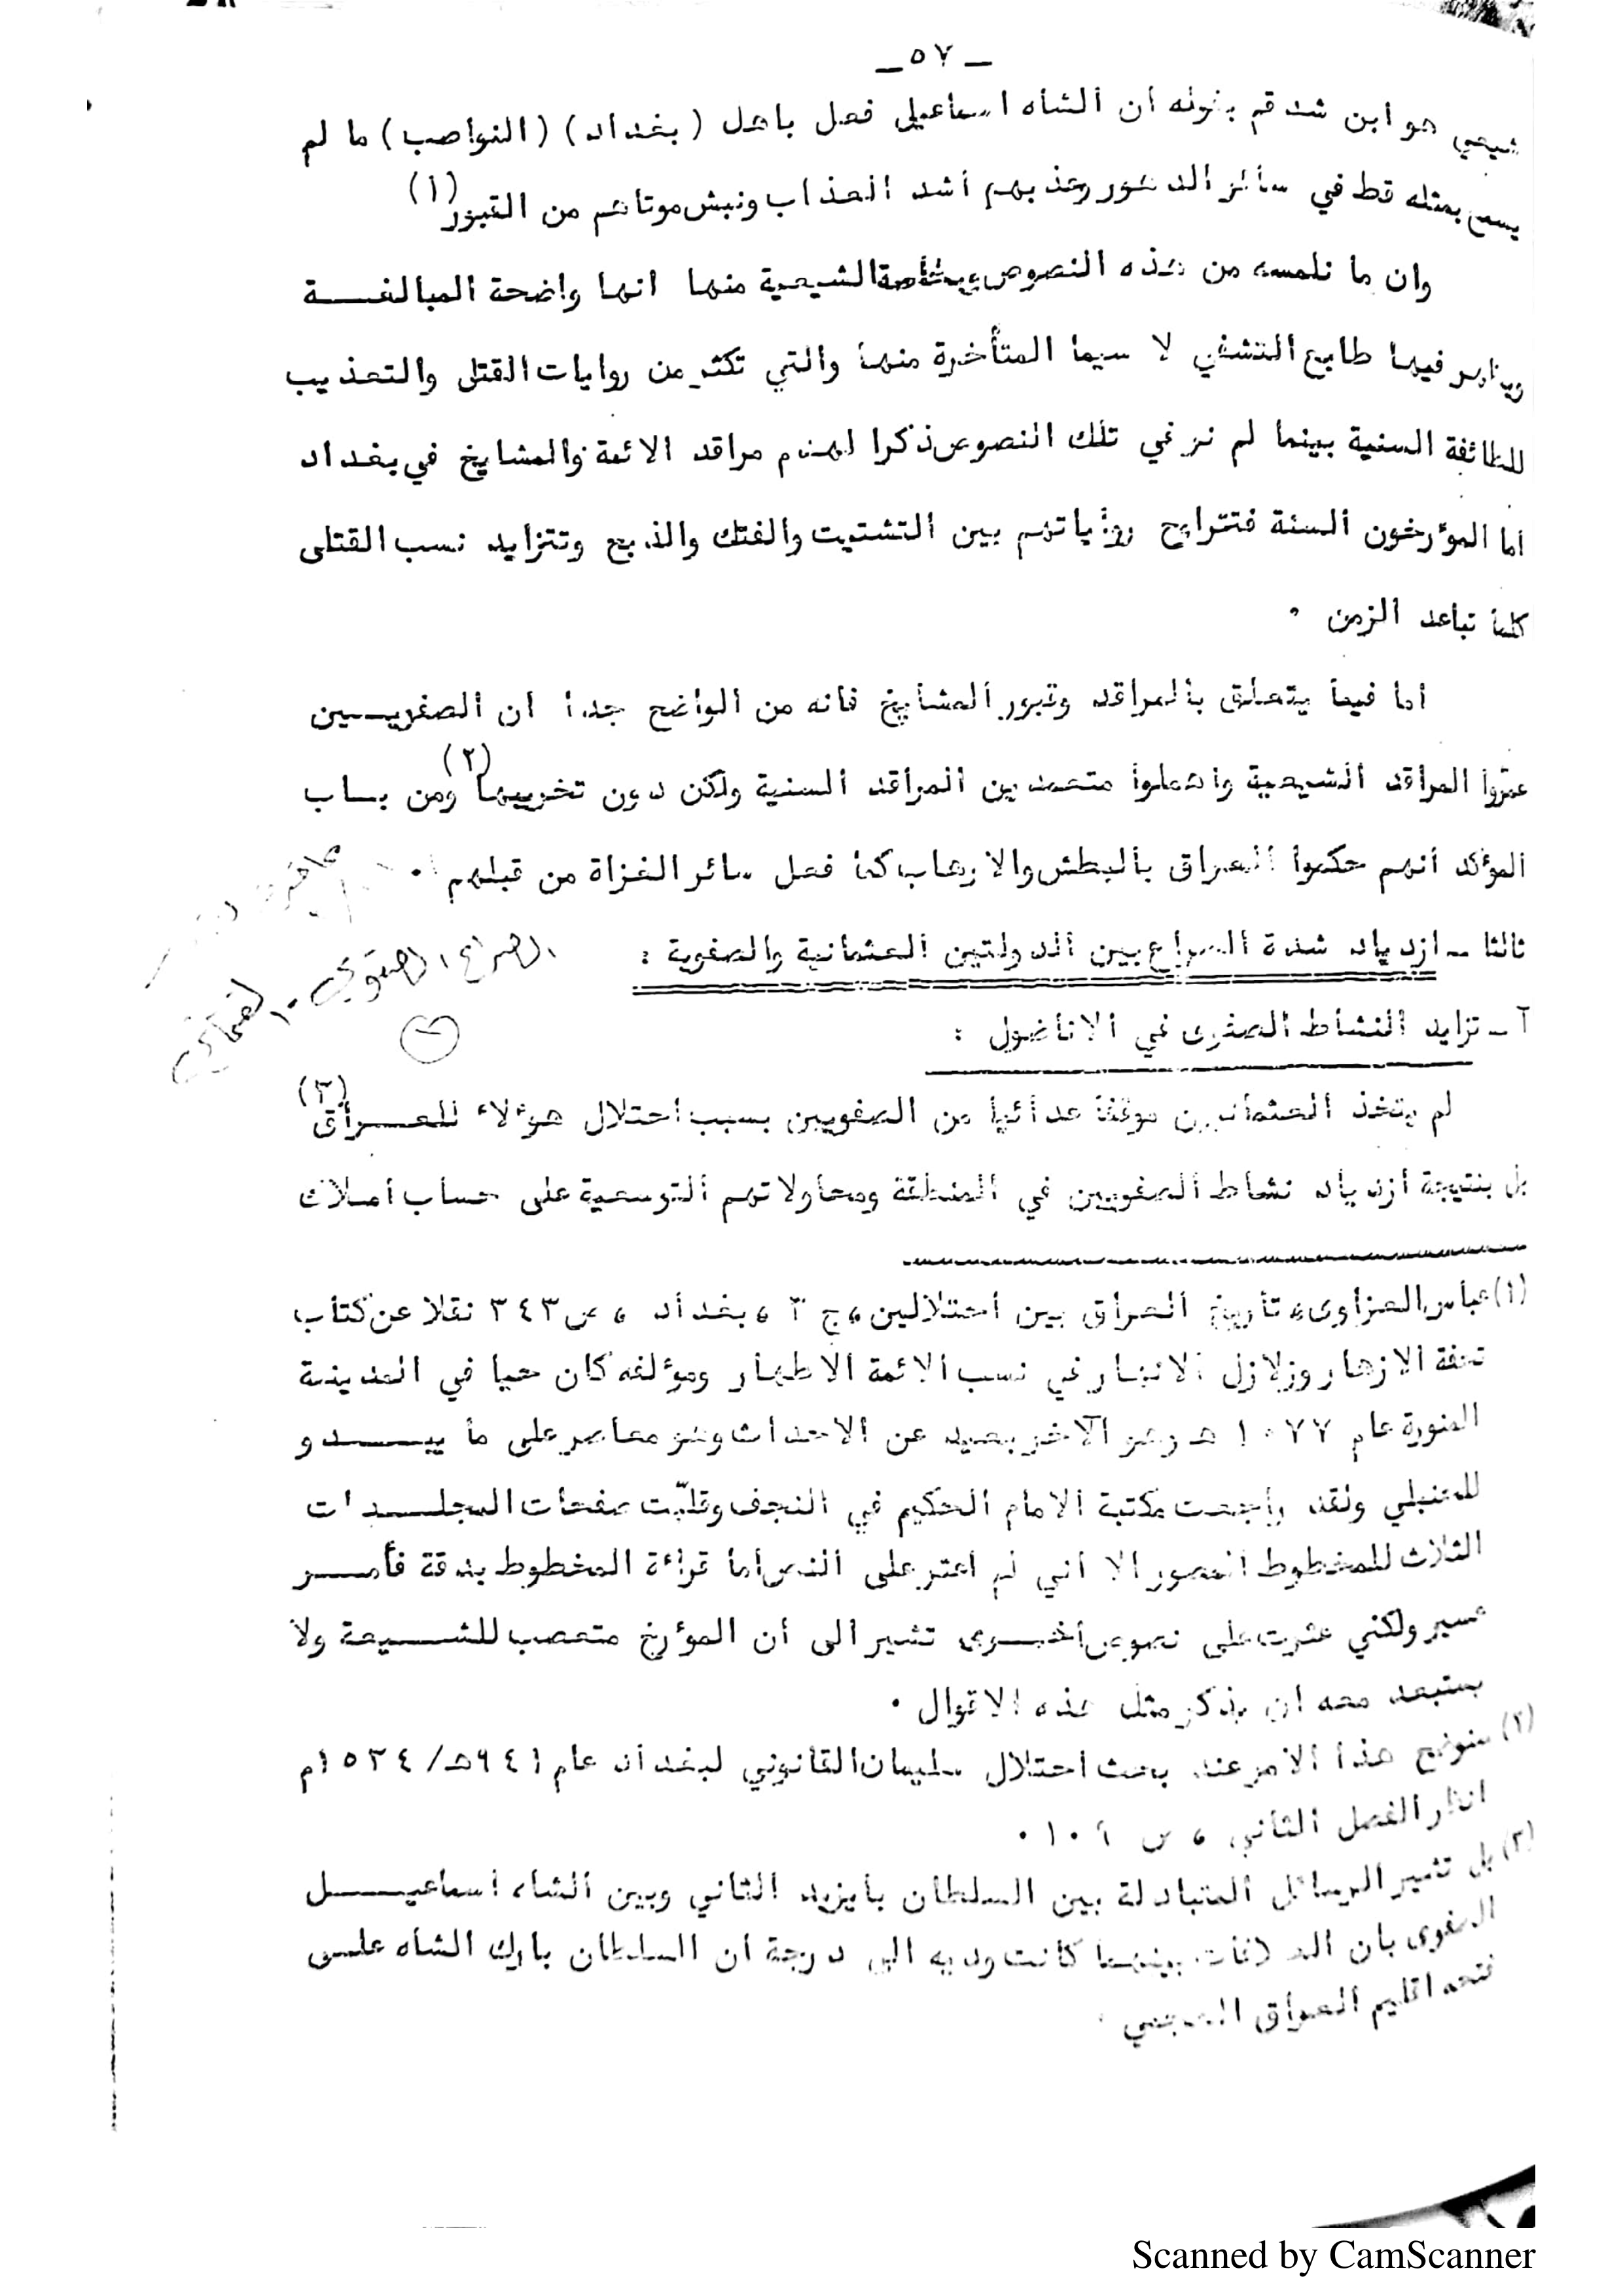 ــ ٥٧ ــ
شيعي هو ابن شدقم بقوله ان الشاه اسماعيل فعل باهل (بغداد) (النواصب) ما لم
يسمع بمثله قط في سائر الدهور وعذبهم أشد العذاب ونبش موتاهم من القبور (١)
وان ما نلمسه من هذه النصوص وبخاصة الشيعية منها انها واضحة المبالغـــــة
ويظهر فيها طابع التشفي لا سيما المتأخرة منها والتي تكثر من روايات القتل والتعذيب
للطائفة السنية بينما لم نر في تلك النصوص ذكرا لهدم مراقد الائمة والمشايخ في بغداد
اما المؤرخون السنة فتتراوح رواياتهم بين التشتيت والفتك والذبح وتتزايد نسب القتلى
كلما تباعد الزمن ٠
اما فيما يتعلق بالمراقد وقبور المشايخ فانه من الواضح جدا ان الصفويـــين
عمّروا المراقد الشيعية واهملوا متعمدين المراقد السنية ولكن دون تخريبها (٢) ومن بــاب
المؤكد أنهم حكموا العراق بالبطش والارهاب كما فعل سائر الغزاة من قبلهم ٠
ثالثا ــ ازدياد شدة الصراع بين الدولتين العثمانية والصفوية :
الصراع الصفوي - العثماني
آ ــ تزايد النشاط الصفوى في الاناضول :
لم يتخذ العثمانيون موقفا عدائيا من الصفويين بسبب احتلال هؤلاء للعـــراق (٣)
بل بنتيجة ازدياد نشاط الصفويين في المنطقة ومحاولاتهم التوسعية على حساب أملاك
(١) عباس العزاوى ، تاريخ العراق بين احتلالين ، ج ٣ ، بغداد ، ص ٣٤٣ نقلا عن كتاب
تحفة الازهار وزلازل الانهار في نسب الائمة الاطهار ومؤلفه كان حيا في المدينة
المنورة عام ١٠٧٧ هـ وهو الآخر بعيد عن الاحداث وهو معاصر على ما يبـــــدو
للحنبلي ولقد راجعت مكتبة الامام الحكيم في النجف وقلّبت صفحات المجلــــدات
الثلاث للمخطوط المصور الا أني لم اعثر على النص أما قراءة المخطوط بدقة فأمـــر
عسير ولكني عثرت على نصوص أخــرى تشير الى أن المؤرخ متعصب للشــيعة ولا
يستبعد معه ان يذكر مثل هذه الاقوال ٠
(٢) سنوضح هذا الامر عند بحث احتلال سليمان القانوني لبغداد عام ٩٤١هـ/ ١٥٣٤م
انظر الفصل الثاني ، ص
(٣) بل تشير الرسائل المتبادلة بين السلطان بايزيد الثاني وبين الشاه اسماعيــــل
الصفوى بان العلاقات بينهما كانت وديه الى درجة ان السلطان بارك الشاه علـى
فتحه اقليم العراق العجمي ٠
Scanned by CamScanner